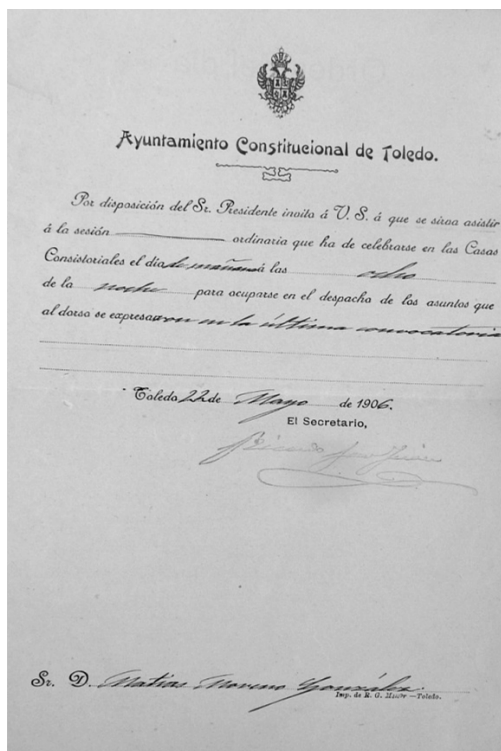 Ayuntamiento Constitucional de Toledo.
Por disposición del Sr. Presidente invito á V. S. á que se sirva asistir
á la sesión ordinaria que ha de celebrarse en las Casas
Consistoriales el día de mañana á las ocho
de la noche para ocuparse en el despacho de los asuntos que
al dorso se expresaron en la última convocatoria
Toledo 22 de Mayo de 1906.
El Secretario,
Sr. D. Matias Moreno González.
Imp. de R. G. —Toledo.